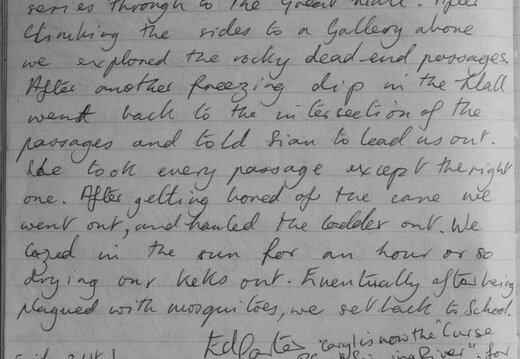 series through to the Great Hall. After
climbing the sides to a Gallery above
we explored the rocky dead-end passages.
After another freezing dip in the Hall
went back to the intersection of the
passages and told Sian to lead us out.
She took every passage except the right
one. After getting bored of the cave we
went out, and hauled the ladder out. We
lazed in the sun for an hour or so
drying our keks out. Eventually after being
plagued with mosquitoes, we set back to School.
Ed Porter "Caryl is now the "Curse
River". for